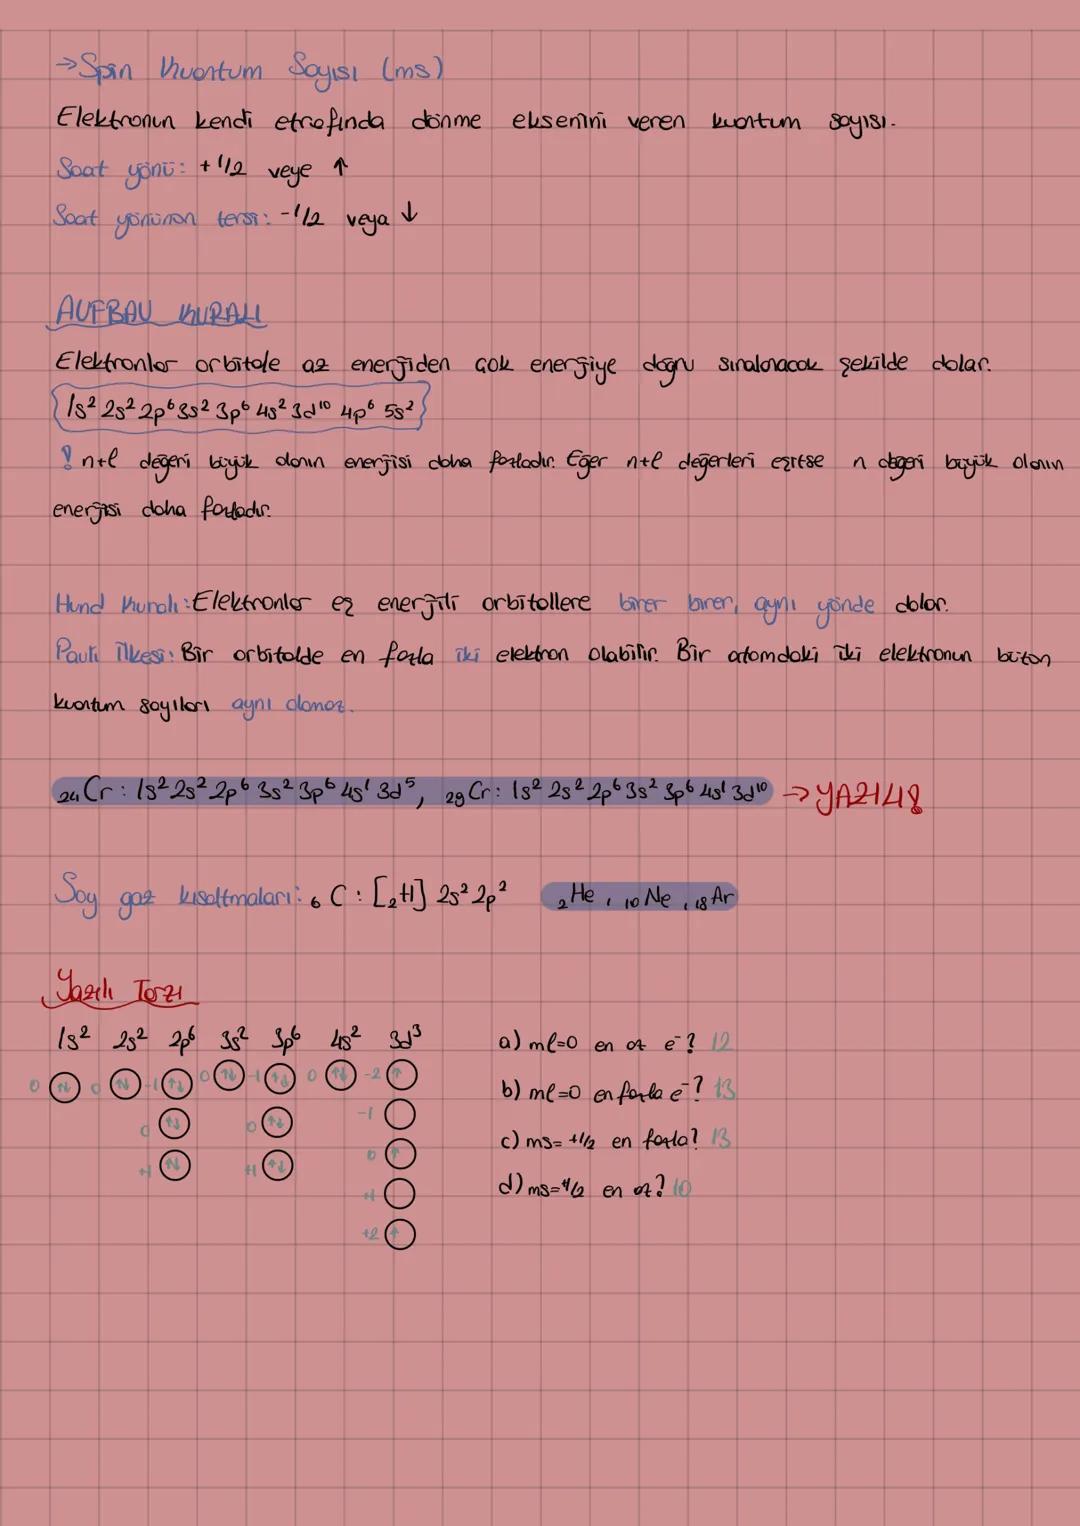 →Spin Kuantum Sayısı (ms)
Elektronun kendi etrafında dönme eksenini veren kuantum sayısı.
Saat yönü: +1/2 veye ↑
Saat yönünün tersi: -1/2 veya ↓
AUFBAU KURALI
Elektronlar orbitale az enerjiden çok enerjiye doğru sıralanacak şekilde dolar.
1s² 2s² 2p⁶ 3s² 3p⁶ 4s² 3d¹⁰ 4p⁶ 5s²
! n+l değeri büyük olanın enerjisi daha fazladır. Eğer n+l değerleri eşitse n değeri büyük olanın
enerjisi daha fazladır.
Hund Kuralı: Elektronlar eş enerjili orbitallere birer birer, aynı yönde dolar.
Pauli İlkesi: Bir orbitalde en fazla iki elektron olabilir. Bir atomdaki iki elektronun bütün
kuantum sayıları aynı olamaz.
₂₄Cr: 1s² 2s² 2p⁶ 3s² 3p⁶ 4s¹ 3d⁵, ₂₉Cr: 1s² 2s² 2p⁶ 3s² 3p⁶ 4s¹ 3d¹⁰ → YAZILI!
Soy gaz kısaltmaları: ₆C: [₂H] 2s² 2p² ₂He, ₁₀Ne, ₁₈Ar
Yazılı Tarzı
1s² 2s² 2p⁶ 3s² 3p⁶ 4s² 3d³ a) ml=0 en az e⁻? 12
0 ↑↓ 0 ↑↓ -1 ↑↓ 0 ↑↓ -1 ↑↓ 0 ↑↓ -2 ↑ b) ml=0 en fazla e⁻? 13
0 ↑↓ 0 ↑↓ -1
+1 ↑↓ +1 ↑↓ 0 ↑ c) ms= +1/2 en fazla? 13
+1 d) ms=+1/2 en az? 10
+2 ↑